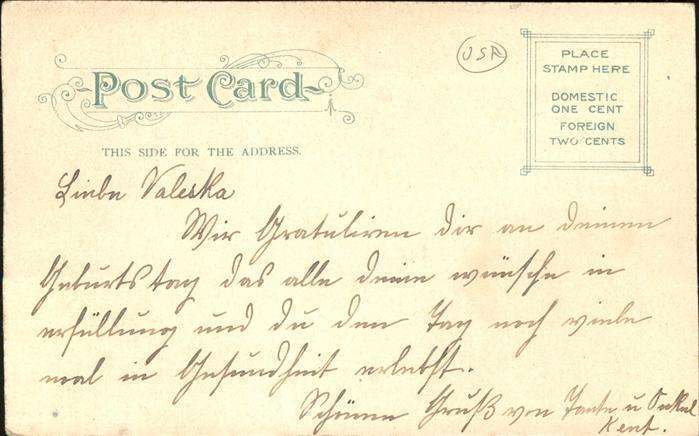 USA
Post Card
PLACE
STAMP HERE
DOMESTIC
ONE CENT
FOREIGN
TWO CENTS
THIS SIDE FOR THE ADDRESS.
Liebe Valeska
Wir Gratuliren dir an deinen
Geburtstag das alle deine wünsche in
erfüllung und du den Tag noch viele
mal in Gesundheit erlebst.
Schönen Gruß von Tante u Onkel
Kent.